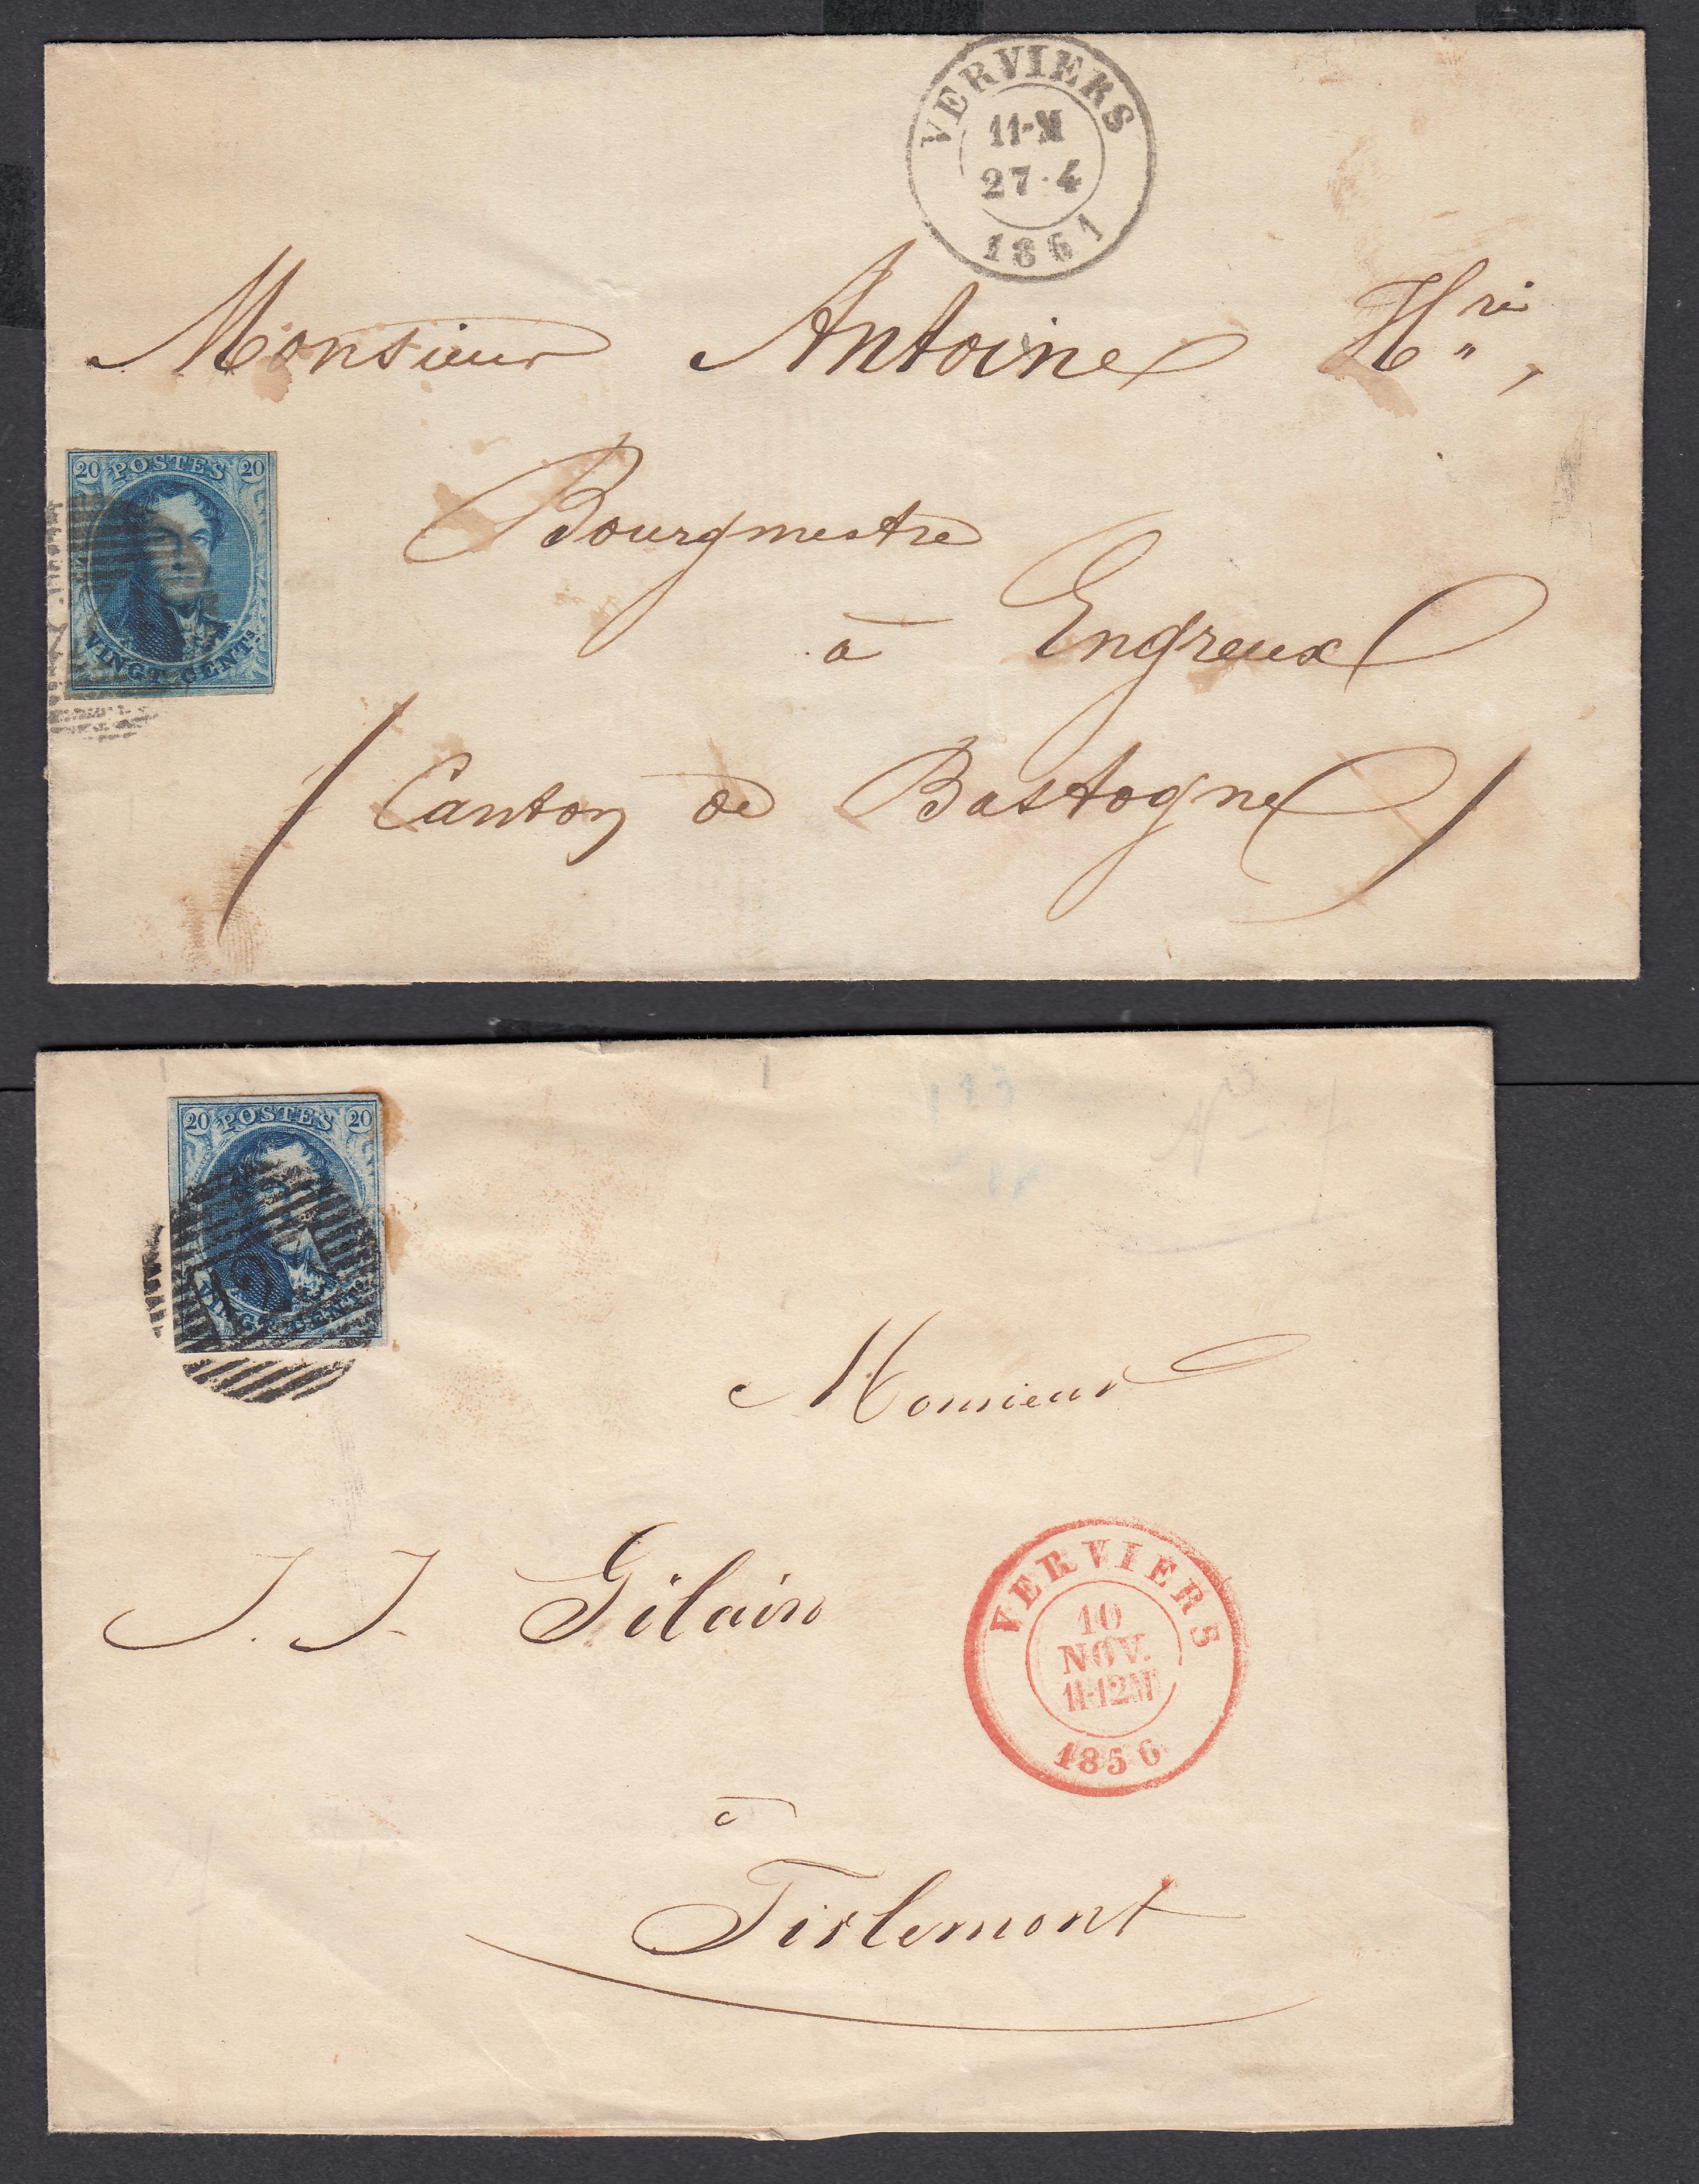 VERVIERS
11-M
27·4
1861
Monsieur Antoine Hri,
20 POSTES 20
VINGT CENTS.
Bourgmestre
à Engreux
( Canton de Bastogne )
20 POSTES 20
VINGT CENTS.
No 7
Monsieur
J. J. Gilain
VERVIERS
10
NOV.
11-12M
1856
à
Tirlemont